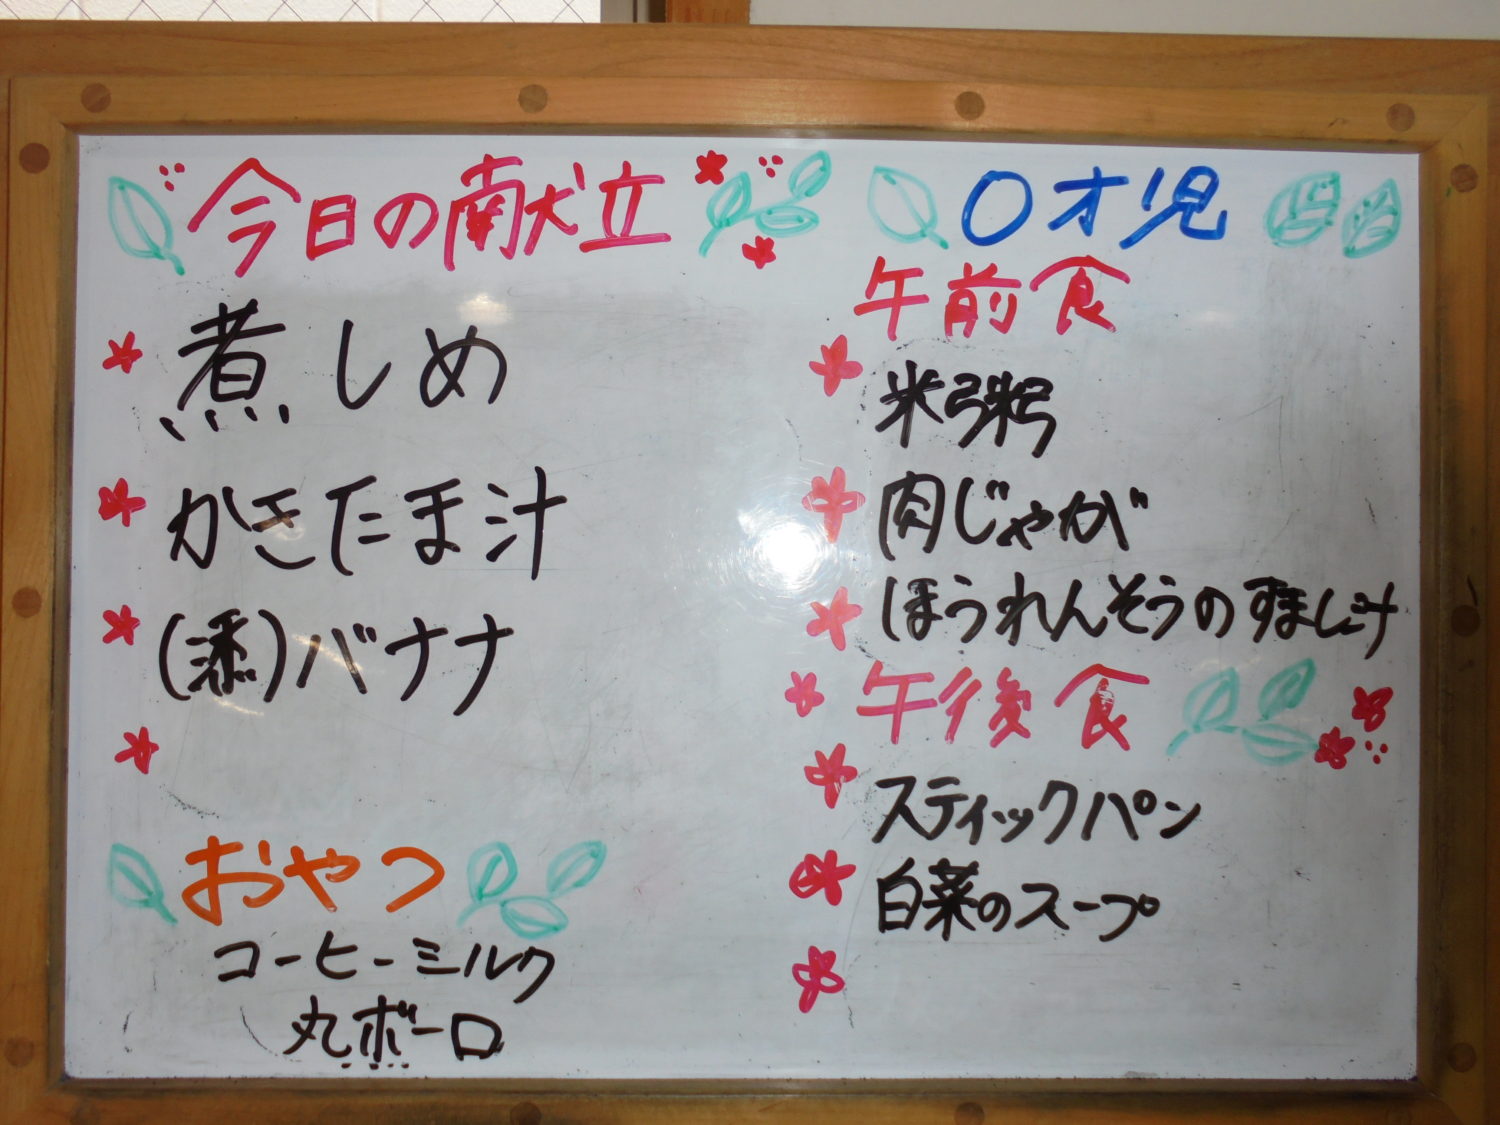 今日の献立
煮しめ
かきたま汁
(添)バナナ
おやつ
コーヒーミルク
丸ボーロ
〇才児
午前食
米粥
肉じゃが
ほうれんそうのすまし汁
午後食
スティックパン
白菜のスープ